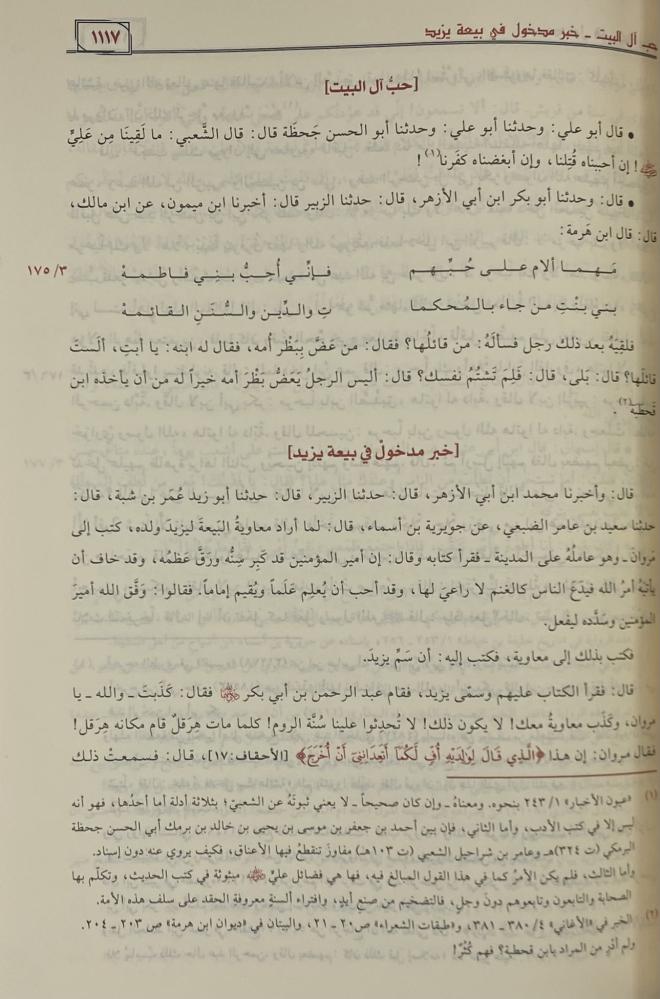 حب آل البيت - خبر مدخول في بيعة يزيد
١١١٧
[حبُّ آل البيت]
• قال أبو علي: وحدثنا أبو علي: وحدثنا أبو الحسن جَحظَة قال: قال الشَّعبي: ما لَقِينَا مِن عَلِيٍّ
رضي الله عنه! إن أحببناه قُتِلنا، وإن أبغضناه كفَرنا(١)!
• قال: وحدثنا أبو بكر ابن أبي الأزهر، قال: حدثنا الزبير قال: أخبرنا ابن ميمون، عن ابن مالك،
قال: قال ابن هَرمة:
مَـهـمـا ألام عـلـى حُـبِّـهـم فـإنِّـي أُحِـبُّ بـنِـي فـاطـمـهْ
٣/ ١٧٥
بـني بـنْـتِ مـن جـاء بـالـمُـحـكـمـا تِ والـدِّيـن والـسُّـنَـنِ الـقـائـمـهْ
فلقِيَهُ بعد ذلك رجل فسألَهُ: من قائلُها؟ فقال: من عَضَّ بِبَظْرِ أُمه، فقال له ابنه: يا أبتِ، ألَستَ
قائلَها؟ قال: بَلى، قال: فَلِمَ تَشتُمُ نفسك؟ قال: أليس الرجلُ يَعَضُّ بَظْرَ أمه خيراً له من أن يأخذه ابن
قَحطَبة(٢).
[خبر مدخولٌ في بيعة يزيد]
قال: وأخبرنا محمد ابن أبي الأزهر، قال: حدثنا الزبير، قال: حدثنا أبو زيد عُمَر بن شبة، قال:
حدثنا سعيد بن عامر الضبعي، عن جويرية بن أسماء، قال: لما أراد معاويةُ البَيعةَ ليزيدَ ولده، كتب إلى
مَروانَ ـ وهو عاملُهُ على المدينة ـ فقرأ كتابه وقال: إن أمير المؤمنين قد كبِر سِنُّه ورَقَّ عَظمُه، وقد خاف أن
يأتيَهُ أمرُ الله فيدَعَ الناس كالغنم لا راعيَ لها، وقد أحب أن يُعلِم عَلَماً ويُقيم إماماً. فقالوا: وَفَّق الله أميرَ
المؤمنين وسَدَّده ليفعل.
فكتب بذلك إلى معاوية، فكتب إليه: أن سَمِّ يزيدَ.
قال: فقرأ الكتاب عليهم وسمّى يزيد، فقام عبد الرحمن بن أبي بكر رضي الله عنهما فقال: كَذَبتَ ـ والله ـ يا
مروان، وكَذَب معاويةُ معك! لا يكون ذلك! لا تُحدِثوا علينا سُنَّة الروم! كلما مات هِرَقلٌ قام مكانه هِرَقل!
فقال مروان: إن هذا ﴿الَّذِي قَالَ لِوَالِدَيْهِ أُفٍّ لَّكُمَا أَتَعِدَانِنِي أَنْ أُخْرَجَ﴾ [الأحقاف: ١٧]، قال: فسمعتْ ذلك
(١) «عيون الأخبار» ١/ ٢٤٣ بنحوه. ومعناهُ ـ وإن كان صحيحاً ـ لا يعني ثبوتَهُ عن الشعبيّ؛ بثلاثة أدلة أما أحدُها، فهو أنه
ليس إلا في كتب الأدب، وأما الثاني، فإن بين أحمد بن جعفر بن موسى بن يحيى بن خالد بن برمك أبي الحسن جحظة
البرمكي (ت ٣٢٤)هـ وعامر بن شراحيل الشعبي (ت ١٠٣هـ) مفاوزَ تنقطعُ فيها الأعناق، فكيف يروي عنه دون إسناد.
وأما الثالث، فلم يكن الأمرُ كما في هذا القول المبالغ فيه، فها هي فضائل عليٍّ رضي الله عنه مبثوثة في كتب الحديث، وتكلّم بها
الصحابة والتابعون وتابعوهم دونَ وجلٍ، فالتضخيم من صنعِ أيدٍ، وافتراء ألسنةٍ معروفة الحقد على سلف هذه الأمة.
(٢) الخبر في «الأغاني» ٤/ ٣٨٠ ـ ٣٨١، و«طبقات الشعراء» ص٢٠ ـ ٢١، والبيتان في «ديوان ابن هرمة» ص ٢٠٣ ـ ٢٠٤.
ولم أدْرِ من المراد بابن قحطبة؟ فهم كُثُرٌ!